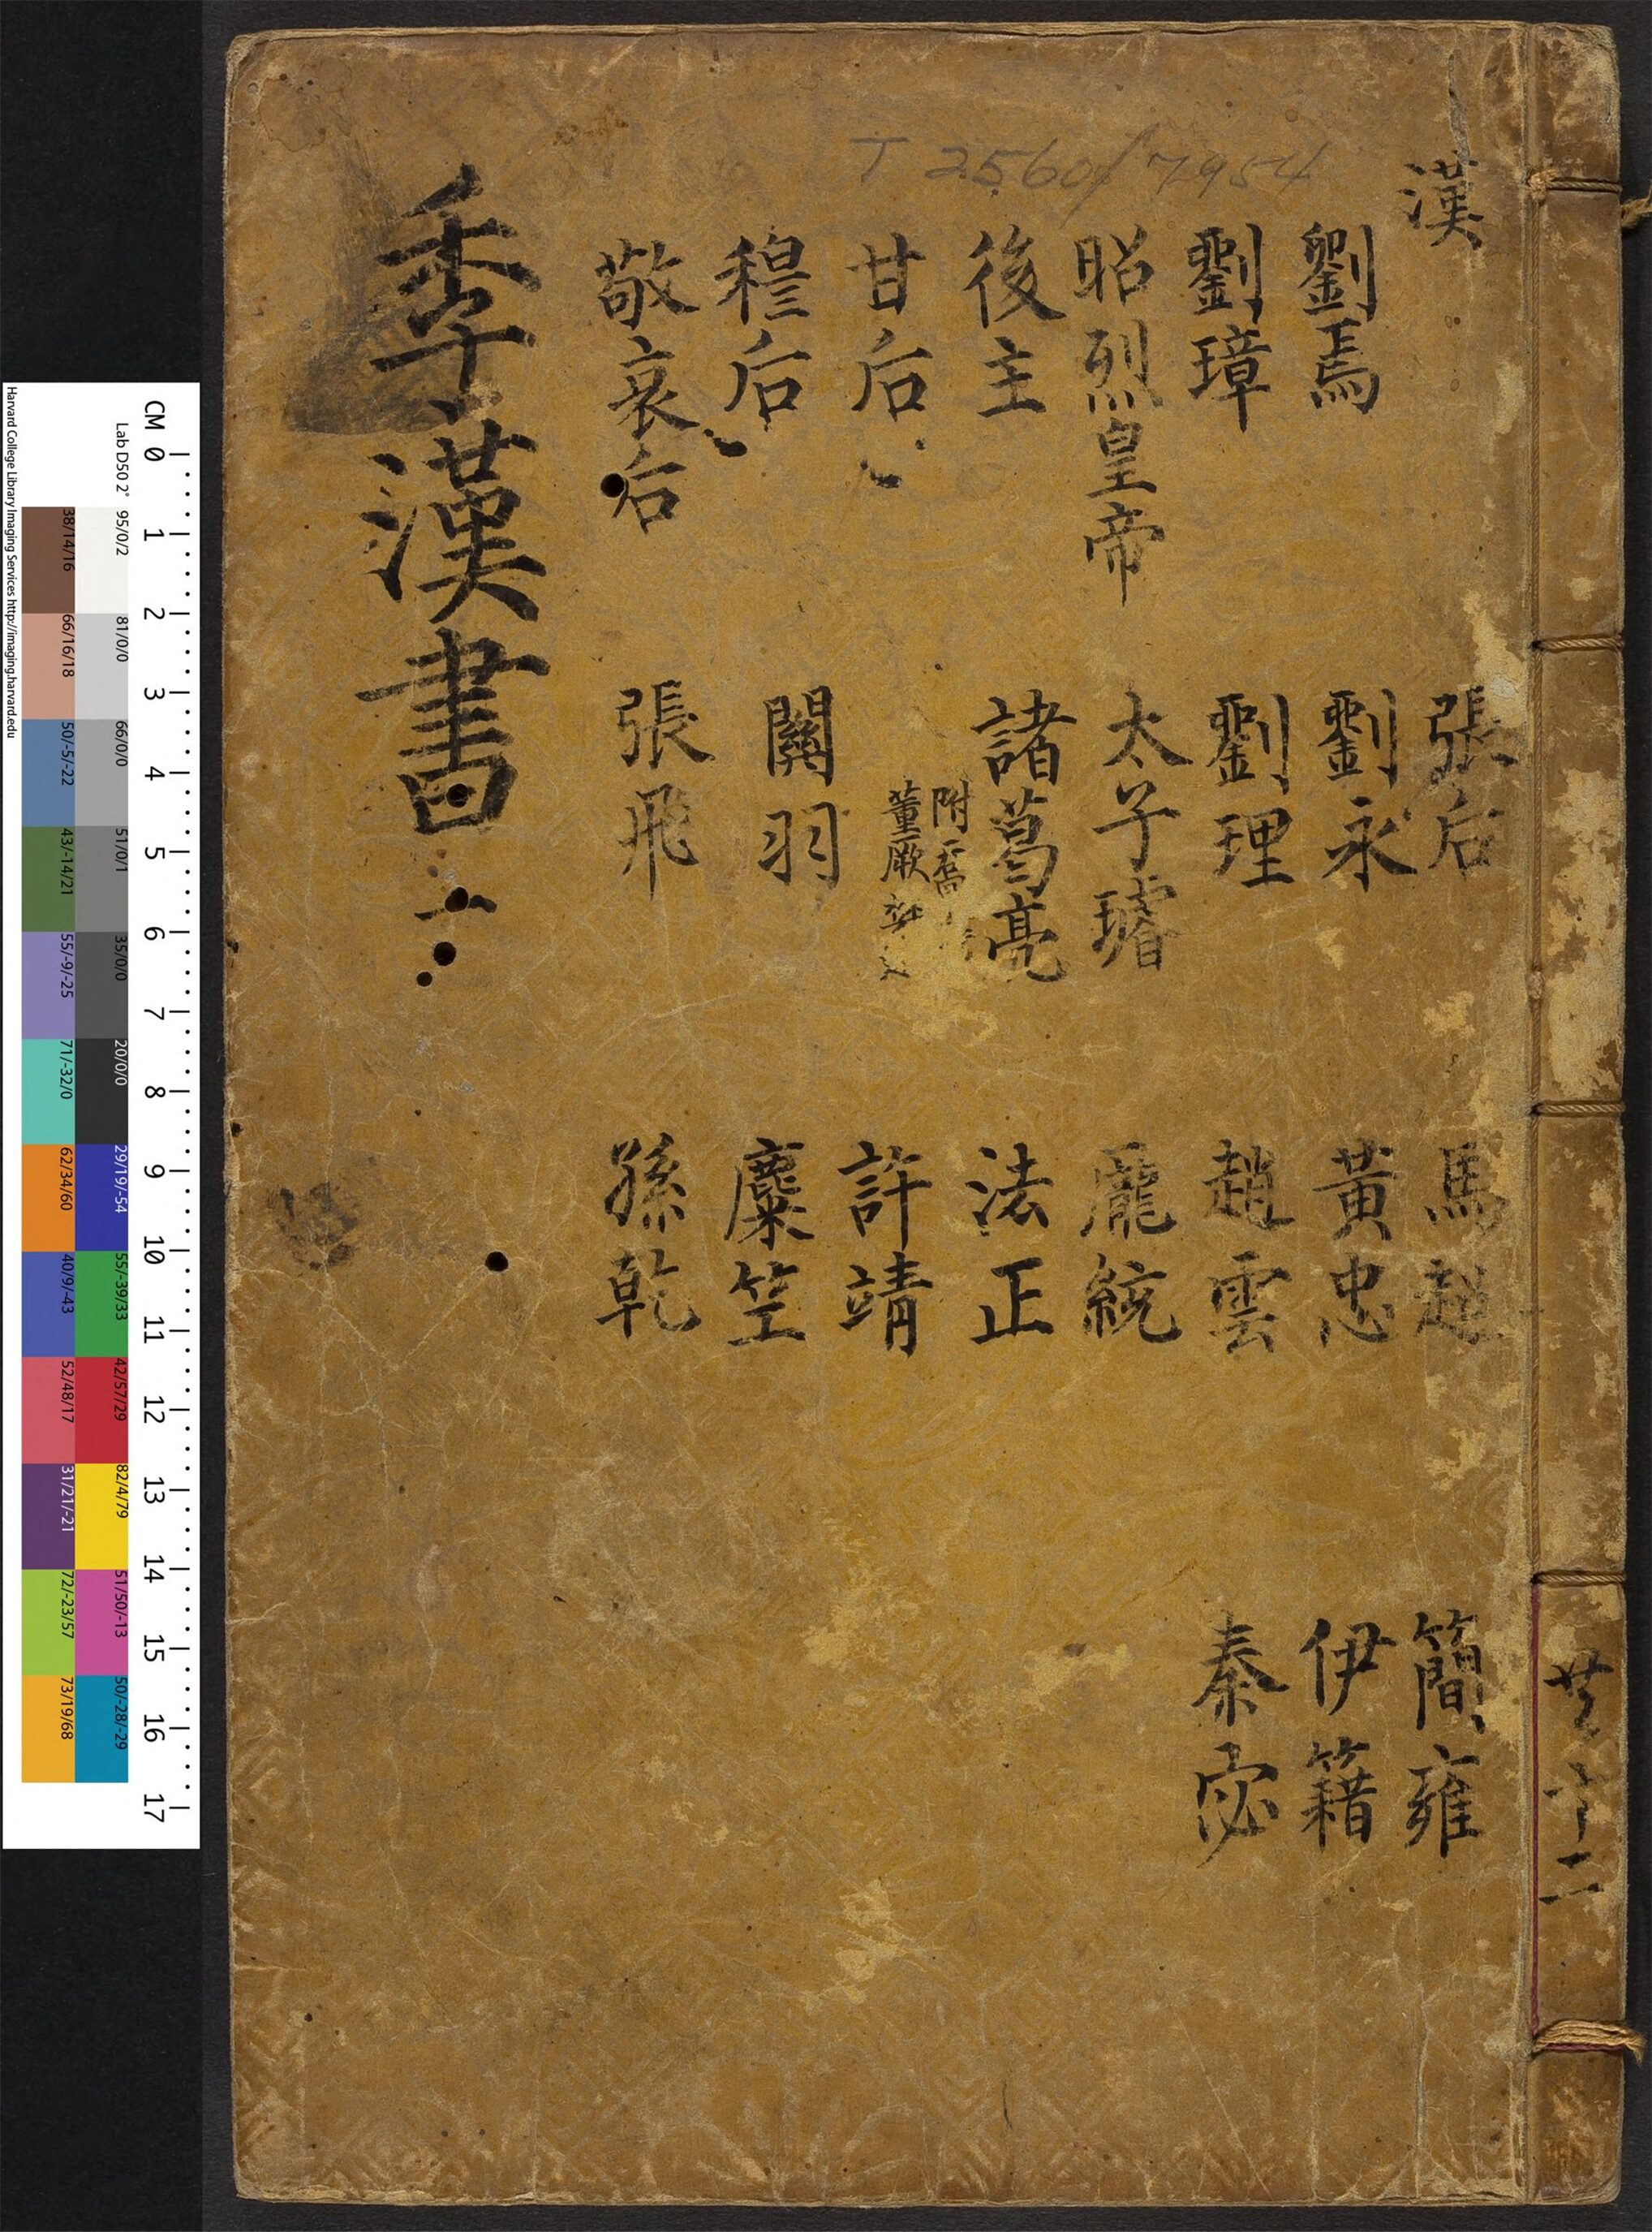 漢
劉焉
劉璋
昭烈皇帝
後主
甘后
穆后
敬哀后
張后
劉永
劉理
太子璿
諸葛亮
附喬
董厥
關羽
張飛
馬超
黃忠
趙雲
龐統
法正
許靖
麋笁
孫乾
簡雍
伊籍
秦宓
季漢書 一
共十二
T 2560/7954
CM 0 1 2 3 4 5 6 7 8 9 10 11 12 13 14 15 16 17
Lab D50 2° 95/0/2 81/0/0 66/0/0 51/0/1 35/0/0 20/0/0 29/19/-54 55/-39/33 42/57/29 82/4/79 51/50/-13 50/-28/-29
38/14/16 66/16/18 50/-5/-22 43/-14/21 55/-9/-25 71/-32/0 62/34/60 40/9/-43 52/48/17 31/21/-21 72/-23/57 73/19/68
Harvard College Library Imaging Services http://imaging.harvard.edu